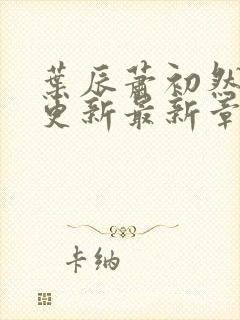 葉辰蕭初然
更新最新章
卡納